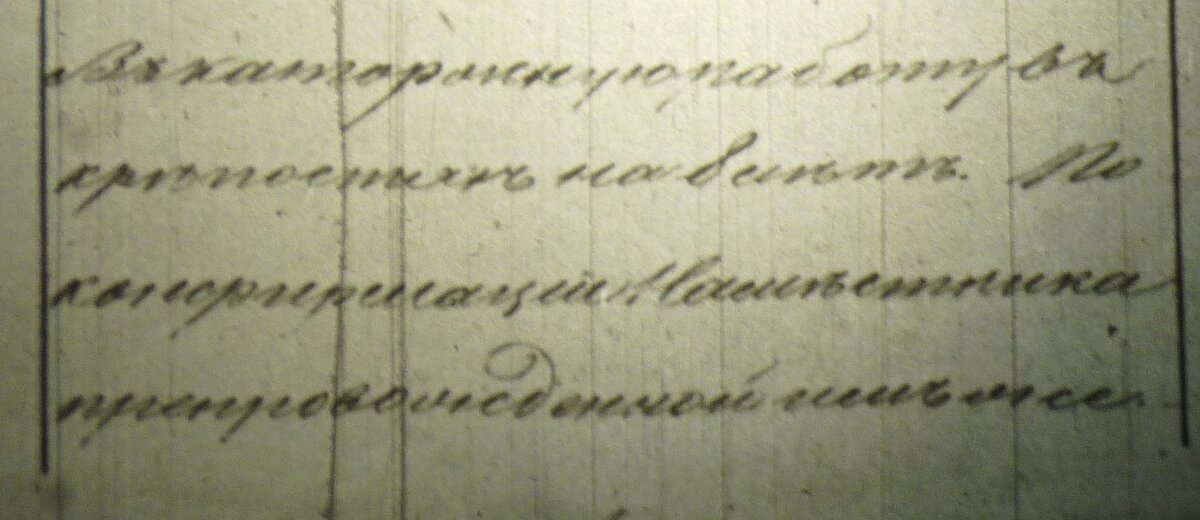 Въ каторжную работу въ
крѣпостяхъ на 8 лѣтъ. По
конфирмаціи Намѣстника
препровожденной имъ же.